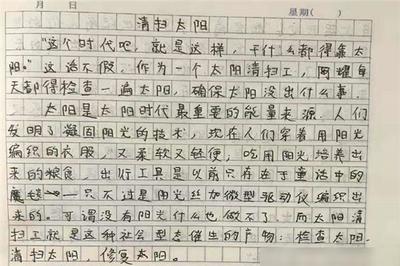 月 日 星期( )
清扫太阳
"这个时代吧,就是这样,干什么都得靠太
阳。"这话不假,作为一个太阳清扫工,阿耀每
天都得检查一遍太阳,确保太阳没出什么事。
太阳是太阳时代最重要的能量来源,人们
发明了凝固阳光的技术,现在人们穿着用阳光
编织的衣服,又柔软又轻便,吃用阳光培养出
来的粮食,出行工具是以前只存在于童话中的
魔毯——只不过是阳光丝加微型驱动仪编织出
来的。可谓没有阳光什么也做不了,而太阳清
扫工就是这种社会型态催生的产物:检查太阳,
清扫太阳,修复太阳。